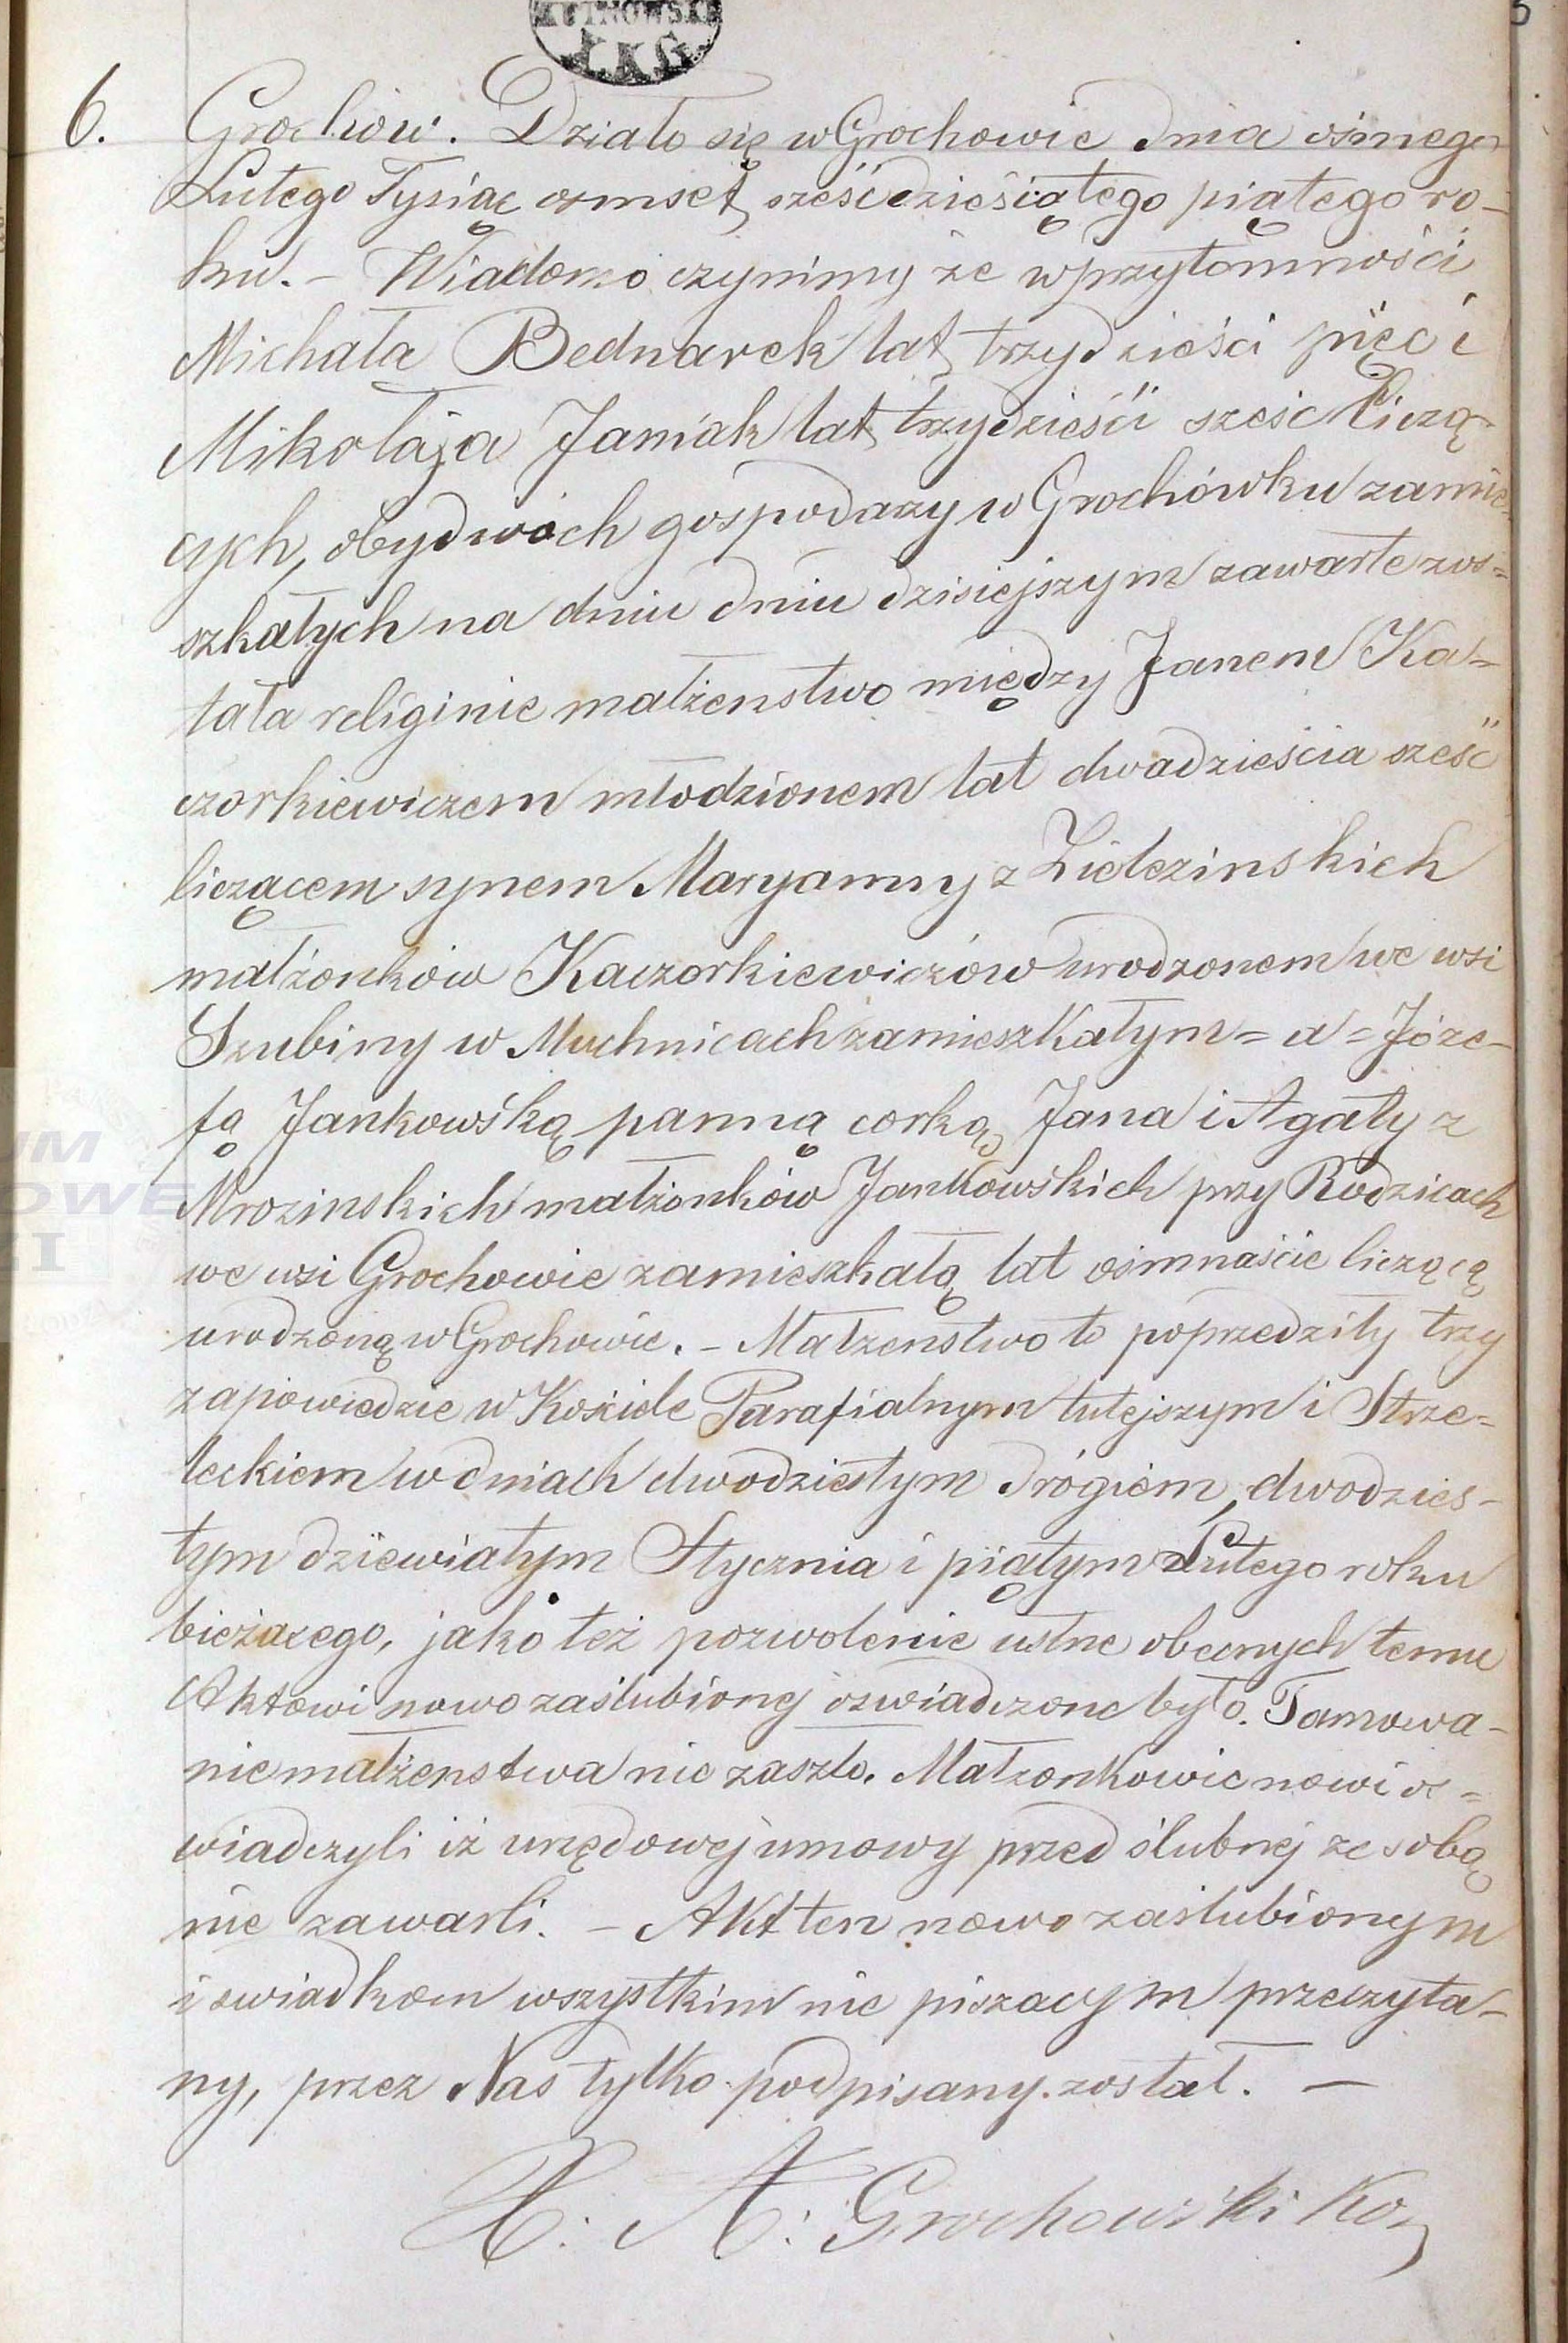 KUTNOWSKI
XKG
5
6. Grochów. Działo się w Grochowie dnia ósmego
Lutego Tysiąc ośmset sześćdziesiątego piątego ro-
ku. – Wiadomo czynimy że w przytomności
Michała Bednarek lat trzydzieści pięć i
Mikołaja Janiak lat trzydzieści sześć liczą-
cych, obydwóch gospodarzy w Grochówku zamie-
szkałych na dniu dniu dzisiejszym zawarte zos=
tała religinie małżenstwo między Janem Ka=
czorkiewiczem młodzionem lat dwadzieścia sześć
liczącem synem Maryanny z
małżonków Kaczorkiewiczów urodzonem we wsi
Szubiny w Muchnicach zamieszkałym = a = Józe-
fą Jankowśką panną corką Jana i Agaty z
Mrozinskich małżonków Jankowśkich przy Rodzicach
we wsi Grochowie zamieszkałą lat ośmnaście liczącą
urodzoną w Grochowie. – Małzenstwo to poprzedziły trzy
zapowiedzie w Kościele Parafialnym tutejszym i Strze=
leckiem w dniach dwodziestym drógiem, dwodzies-
tym dziewiatym Stycznia i piątym Lutego roku
bieżacego, jako też pozwolenie ustne obecnych temu
Aktowi nowo zaślubionej oswiadczone było. Tamowa-
nie małżenstwa nie zaszło. Małzonkowie nowi os=
wiadczyli iż urzędowej umowy przed ślubnej ze sobą
nie zawarli. – Akt ten nowo zaslubionym
i swiadkom wszystkim nie piszacym przeczyta-
ny, przez Nas tylko podpisany został. —
X. A: Grochowski